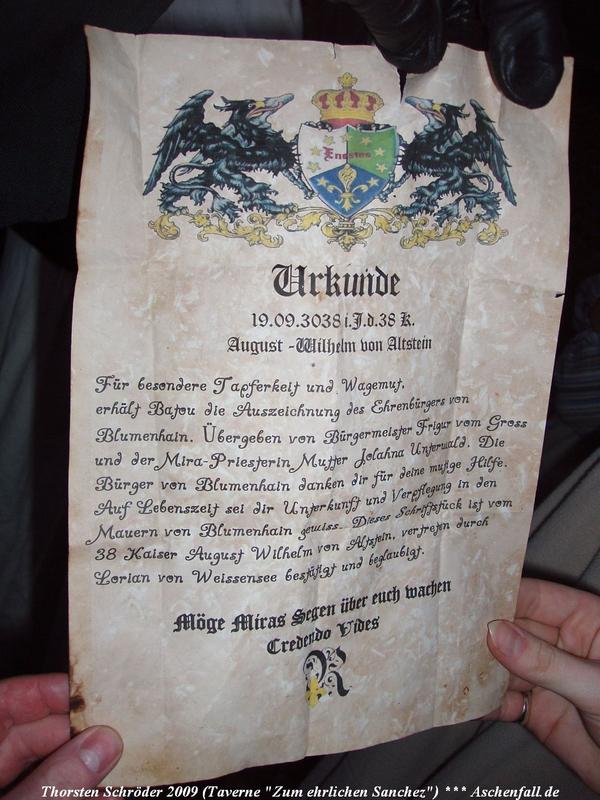 Enestes
Urkunde
19.09.3038 i.J.d.38 K.
August -Wilhelm von Altstein
Für besondere Tapferkeit und Wagemut,
erhält Batou die Auszeichnung des Ehrenbürgers von
Blumenhain. Übergeben von Bürgermeister Frigur vom Gross
und der Mira-Priesterin Mutter Jolahna Unterwald. Die
Bürger von Blumenhain danken dir für deine mutige Hilfe.
Auf Lebenszeit sei dir Unterkunft und Verpflegung in den
Mauern von Blumenhain gewiss. Dieses Schriftstück ist vom
38 Kaiser August Wilhelm von Altstein, vertreten durch
Lorian von Weissensee bestätigt und beglaubigt.
Möge Miras Segen über euch wachen
Credendo Vides
R
Thorsten Schröder 2009 (Taverne "Zum ehrlichen Sanchez") *** Aschenfall.de